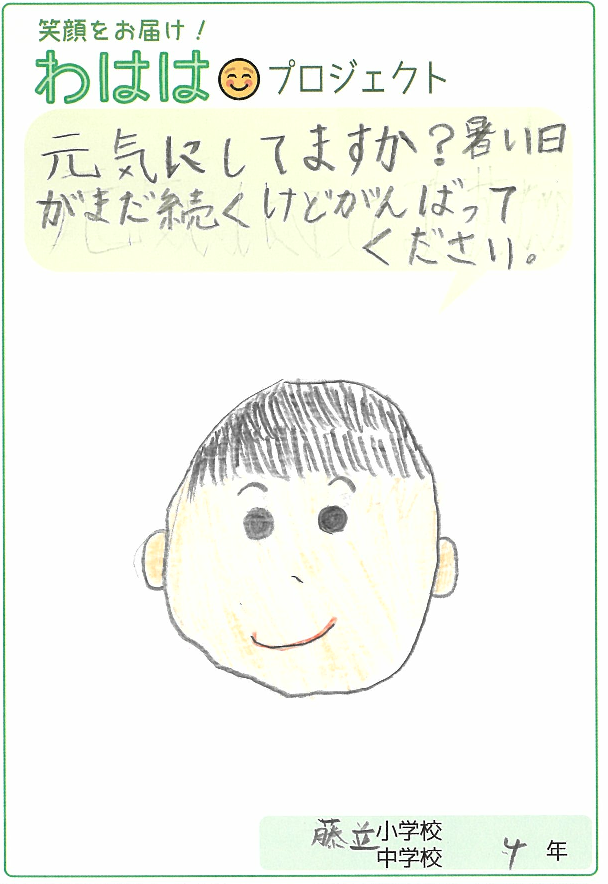 笑顔をお届け！
わははプロジェクト
元気にしてますか？暑い日
がまだ続くけどがんばって
ください。
藤並小学校
中学校
4年